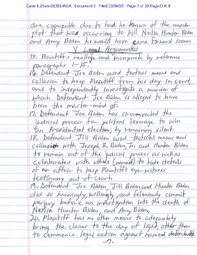 Case 3:20-cv-08355-MGA Document 2 Filed 10/06/20 Page 7 of 10 PageID #: 8
are cognizable due to had the Person of the master
plot that was occurring to kill Neilia Hunter Biden
and Amy Biden he would have came forward sooner.
V. Legal Arguments
15. Plaintiff's realleges and incorporate by reference
Paragraphs 1-15.
16. Defendant Joe Biden used tactical means and
collusion to keep Plaintiff from his day in court,
and to independently investigate a murder of
which Defendant Joe Biden is alleged to have
been the master-mind of.
17. Defendant Joe Biden has circumvented the
judicial process for political leverage to win
the Presidential election, by remaining silent.
18. Defendant Jill Biden used tactical means and
collusion with Joseph R. Biden, Jr. and Hunter Biden
to remain out of the judicial process as well as
collaborated with others (named) to hide details
of an affair to keep Plaintiff's eye-witness
testimony out of court.
19. Defendant Joe Biden, Jill Biden and Hunter Biden
did so knowingly, willingly, and feloniously commit
perjury before an investigation into the death of
Neilia Hunter Biden and Amy Biden.
20. Plaintiff has no other means to adequately
bring the claims to the day of light other than
to commence legal action against named defendants.